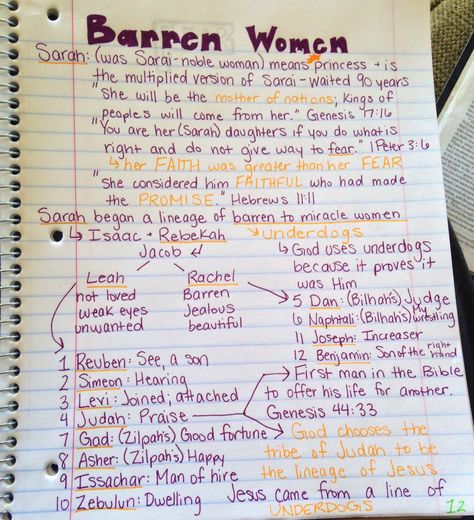 Barren Women
Sarah: (was Sarai-noble woman) means princess + is
the multiplied version of Sarai - Waited 90 years
"She will be the mother of nations; Kings of
peoples will come from her." Genesis 17:16
"You are her (Sarah) daughters if you do what is
right and do not give way to fear." 1 Peter 3:6
↳ her FAITH was greater than her FEAR
"She considered him FAITHFUL who had made
the PROMISE." Hebrews 11:11
Sarah began a lineage of barren to miracle women
↳ Isaac + Rebekah
Jacob ↲
Leah
not loved
weak eyes
unwanted
Rachel
Barren
Jealous
beautiful
↳ underdogs
↳ God uses underdogs
because it proves it
was Him
1 Reuben: See, a son
2 Simeon: Hearing
3 Levi: Joined, attached
4 Judah: Praise
7 Gad: (Zilpah's) Good fortune
8 Asher: (Zilpah's) Happy
9 Issachar: Man of hire
10 Zebulun: Dwelling
5 Dan: (Bilhah's) Judge
6 Naphtali: (Bilhah's) My wrestling
11 Joseph: Increaser
12 Benjamin: Son of the right hand
First man in the Bible
to offer his life for another.
Genesis 44:33
God chooses the
tribe of Judah to be
the lineage of Jesus
Jesus came from a line of
UNDERDOGS
12